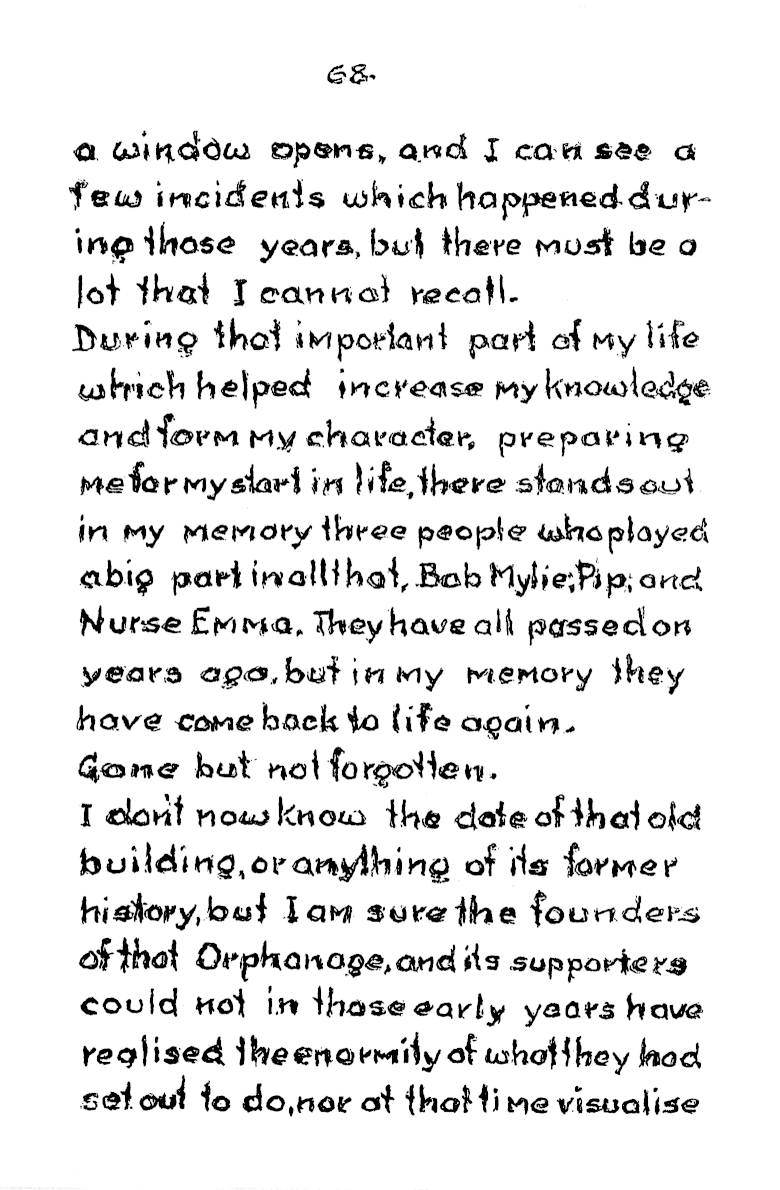 68.
a window opens, and I can see a
few incidents which happened dur-
ing those years, but there must be a
lot that I cannot recall.
During that important part of my life
which helped increase my knowledge
and form my character, preparing
me for my start in life, there stands out
in my memory three people who played
a big part in all that, Bob Mylie; Pip; and
Nurse Emma. They have all passed on
years ago, but in my memory they
have come back to life again.
Gone but not forgotten.
I don't now know the date of that old
building, or anything of its former
history, but I am sure the founders
of that Orphanage, and its supporters
could not in those early years have
realised the enormity of what they had
set out to do, nor at that time visualise